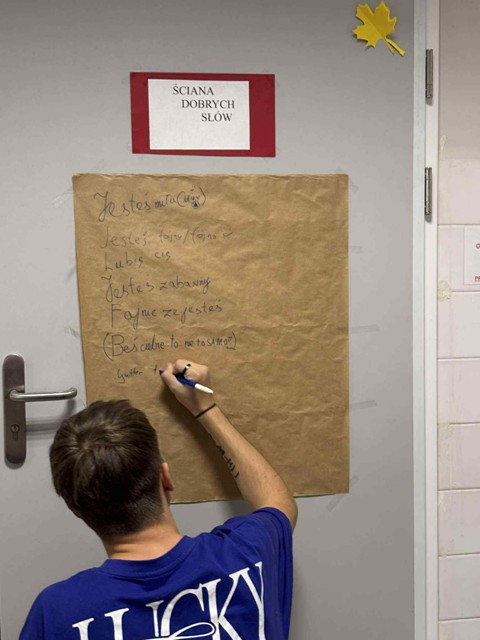 ŚCIANA
DOBRYCH
SŁÓW
Jesteś miła(y)
Jesteś fajny/fajna
Lubię cię
Jesteś zabawny
Fajnie że jesteś
(Beś ciebie to nie to samo)
LUCKY